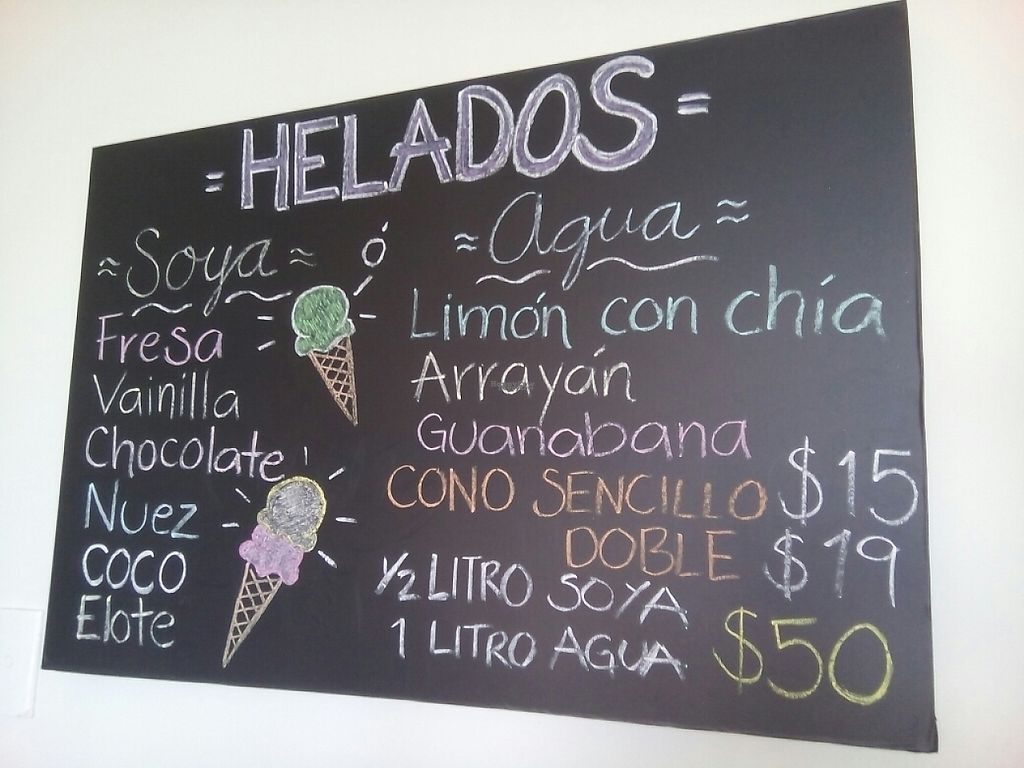 = HELADOS =
≈ Soya ≈
ó
≈ Agua ≈
Fresa
Vainilla
Chocolate
Nuez
COCO
Elote
Limón con chía
Arrayán
Guanabana
CONO SENCILLO $15
DOBLE $19
1/2 LITRO SOYA
1 LITRO AGUA $50